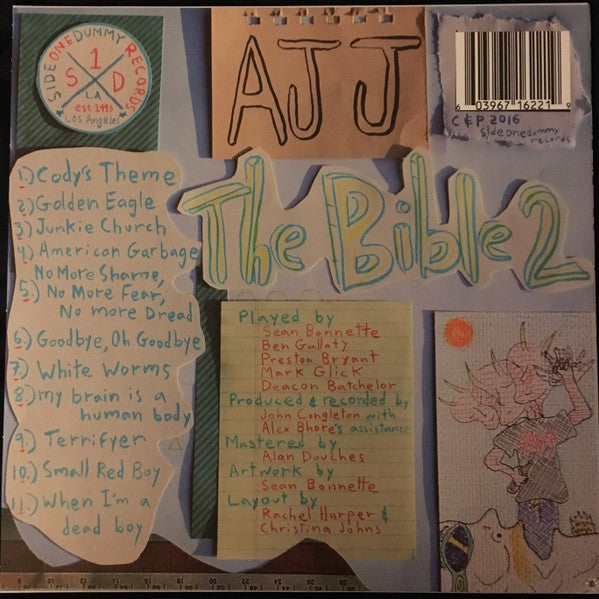 SIDEONEDUMMY RECORDS
1
S D
LA
est. 1995
Los Angeles
AJJ
6 03967 16221 9
C & P 2016
Sideonedummy
records
The Bible 2
1.) Cody's Theme
2.) Golden Eagle
3.) Junkie Church
4.) American Garbage
No More Shame,
5.) No More Fear,
No more Dread
6.) Goodbye, Oh Goodbye
7.) White Worms
8.) my brain is a
human body
9.) Terrifyer
10.) Small Red Boy
11.) When I'm a
dead boy
Played by
Sean Bonnette
Ben Gallaty
Preston Bryant
Mark Glick
Deacon Batchelor
Produced & recorded by
John Congleton with
Alex Bhore's assistance
Mastered by
Alan Douches
Artwork by
Sean Bonnette
Layout by
Rachel Harper &
Christina Johns